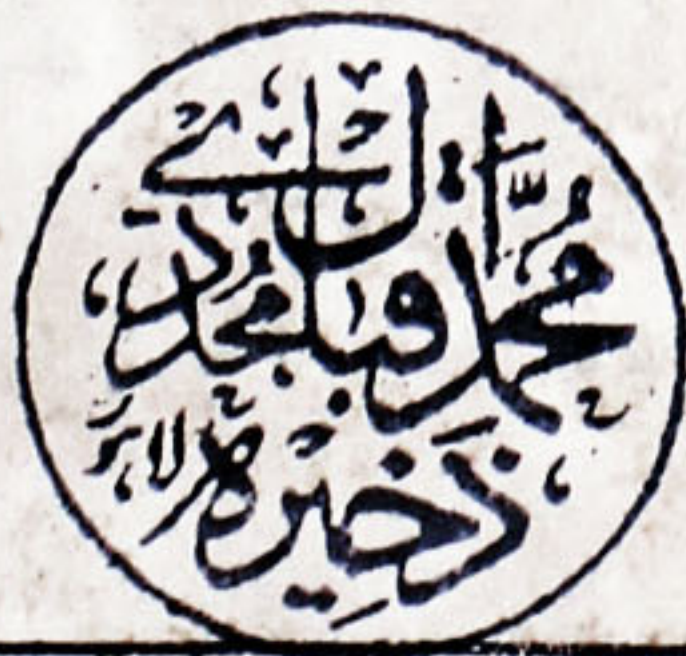 محمّد اقبال مجددی
ذَخِیرہ لاہور